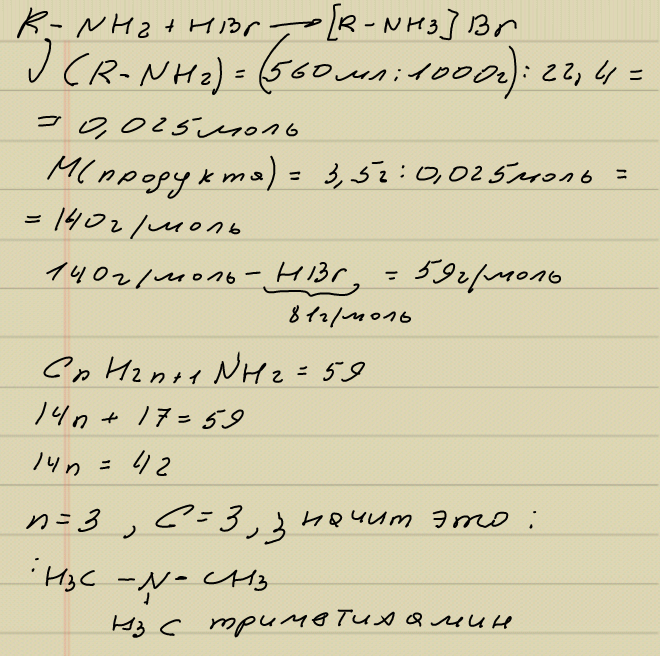 R - NH2 + HBr ⟶ [R - NH3] Br
√ (R - NH2) = (560мл : 1000г) : 22,4 =
= 0,025моль
M(продукта) = 3,5г : 0,025моль =
= 140г/моль
140г/моль - HBr = 59г/моль
81г/моль
Cn H2n+1 NH2 = 59
14n + 17 = 59
14n = 42
n = 3 , C = 3 , значит это :
: H3C - N - CH3
H3 C триметиламин